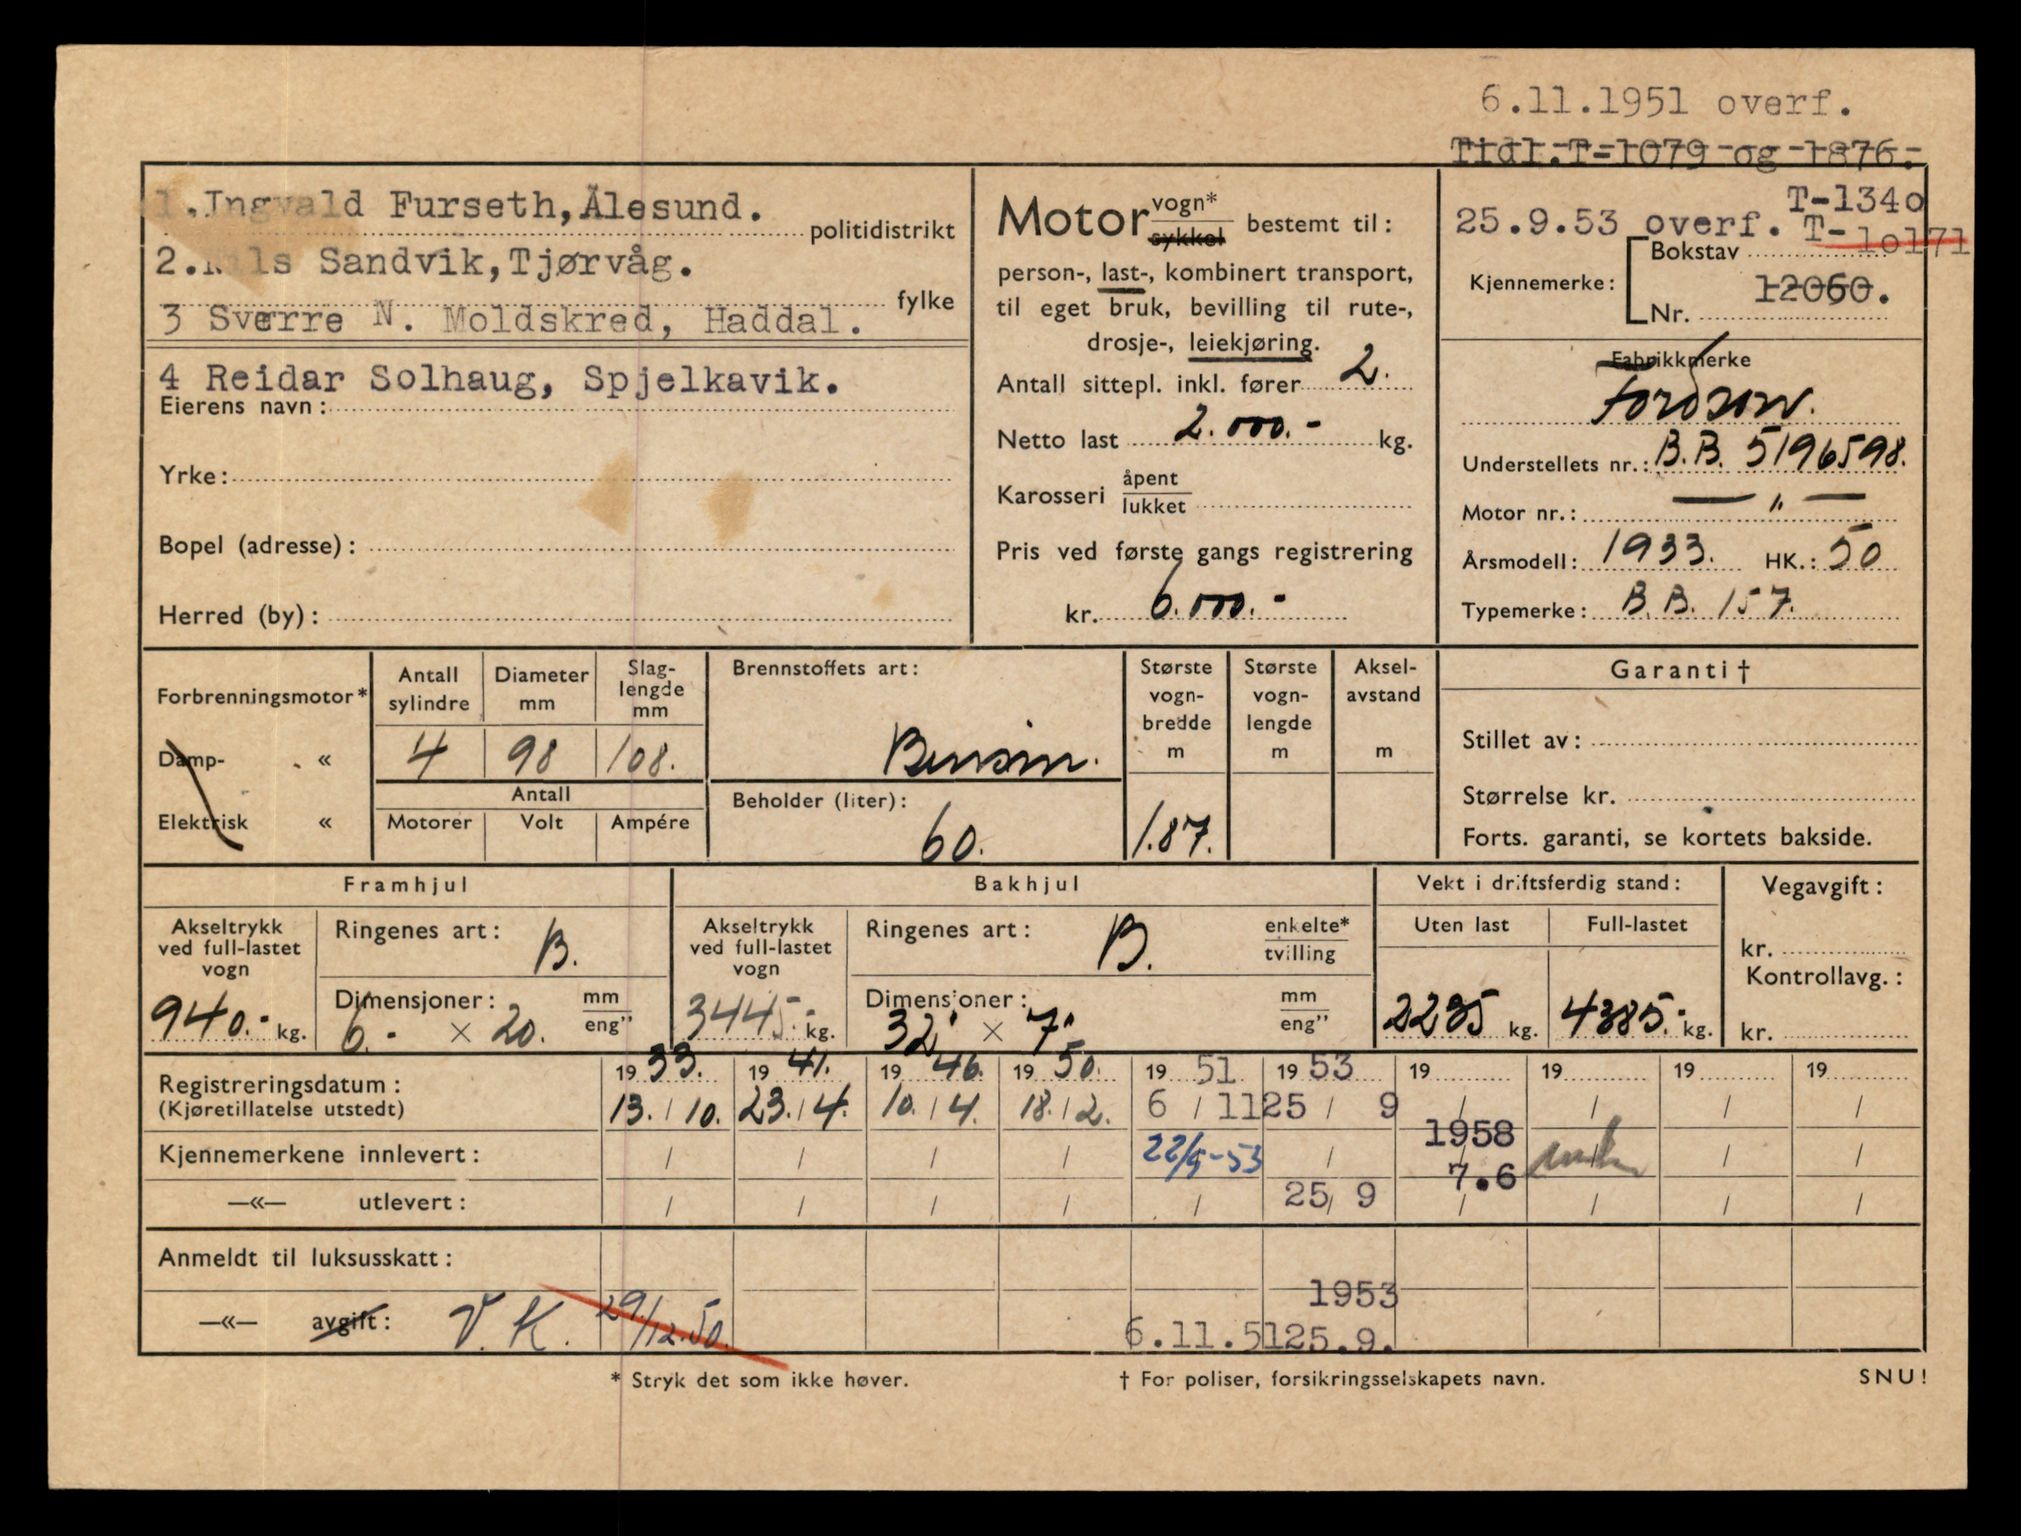 6.11.1951 overf.
Tidl.T-1079 og 1876.
1.Ingvald Furseth,Ålesund.
politidistrikt
2.Nils Sandvik,Tjørvåg.
fylke
3 Sverre N. Moldskred, Haddal.
4 Reidar Solhaug, Spjelkavik.
Eierens navn:
Yrke:
Bopel (adresse):
Herred (by):
Motor vogn* sykkel bestemt til:
person-, last-, kombinert transport,
til eget bruk, bevilling til rute-,
drosje-, leiekjøring.
Antall sittepl. inkl. fører 2.
Netto last 2.000.- kg.
Karosseri åpent lukket
Pris ved første gangs registrering
kr. 6.000.-
T-1340
25.9.53 overf. T-10171
Bokstav
Kjennemerke:
12060.
Nr.
Fabrikkmerke
Fordson.
Understellets nr.: B.B. 5196598.
Motor nr.: — " —
Årsmodell: 1933. HK.: 50
Typemerke: B.B. 157.
Forbrenningsmotor*
Damp- «
Elektrisk «
Antall sylindre
Diameter mm
Slag-lengde mm
4 98 108.
Antall
Motorer Volt Ampére
Brennstoffets art:
Bensin.
Beholder (liter):
60.
Største vogn-bredde m
1.87.
Største vogn-lengde m
Aksel-avstand m
Garanti †
Stillet av:
Størrelse kr.
Forts. garanti, se kortets bakside.
Framhjul
Akseltrykk ved full-lastet vogn
940.- kg.
Ringenes art: B.
Dimensjoner: mm eng"
6.- × 20.
Bakhjul
Akseltrykk ved full-lastet vogn
3445.- kg.
Ringenes art: B. enkelte* tvilling
Dimensjoner: mm eng"
32" × 7"
Vekt i driftsferdig stand:
Uten last Full-lastet
2235 kg. 4385.- kg.
Vegavgift:
kr.
Kontrollavg.:
kr.
Registreringsdatum: 1933. 1941. 1946. 1950. 19 51 19 53 19 19 19 19
(Kjøretillatelse utstedt) 13./10. 23./4. 10./4. 18./2. 6 / 11 25 / 9 / / / /
1958
Kjennemerkene innlevert: / / / / 22/9-53 / 7.6 / / /
—«— utlevert: / / / / / 25/ 9 / / / /
Anmeldt til luksusskatt:
1953
—«— avgift: V. K. 29/12.50. 6.11.51 25.9.
* Stryk det som ikke høver.
† For poliser, forsikringsselskapets navn.
SNU!